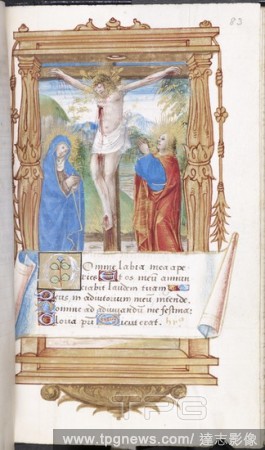 83
Domine labia mea ape
ries Et os meu annun
ciabit laudem tuam
Deus in adiutorium meu intende.
Domine ad adiuvandu me festina:
Gloria pri Sicut erat.
TPG
www.tpgnews.com / 達志影像